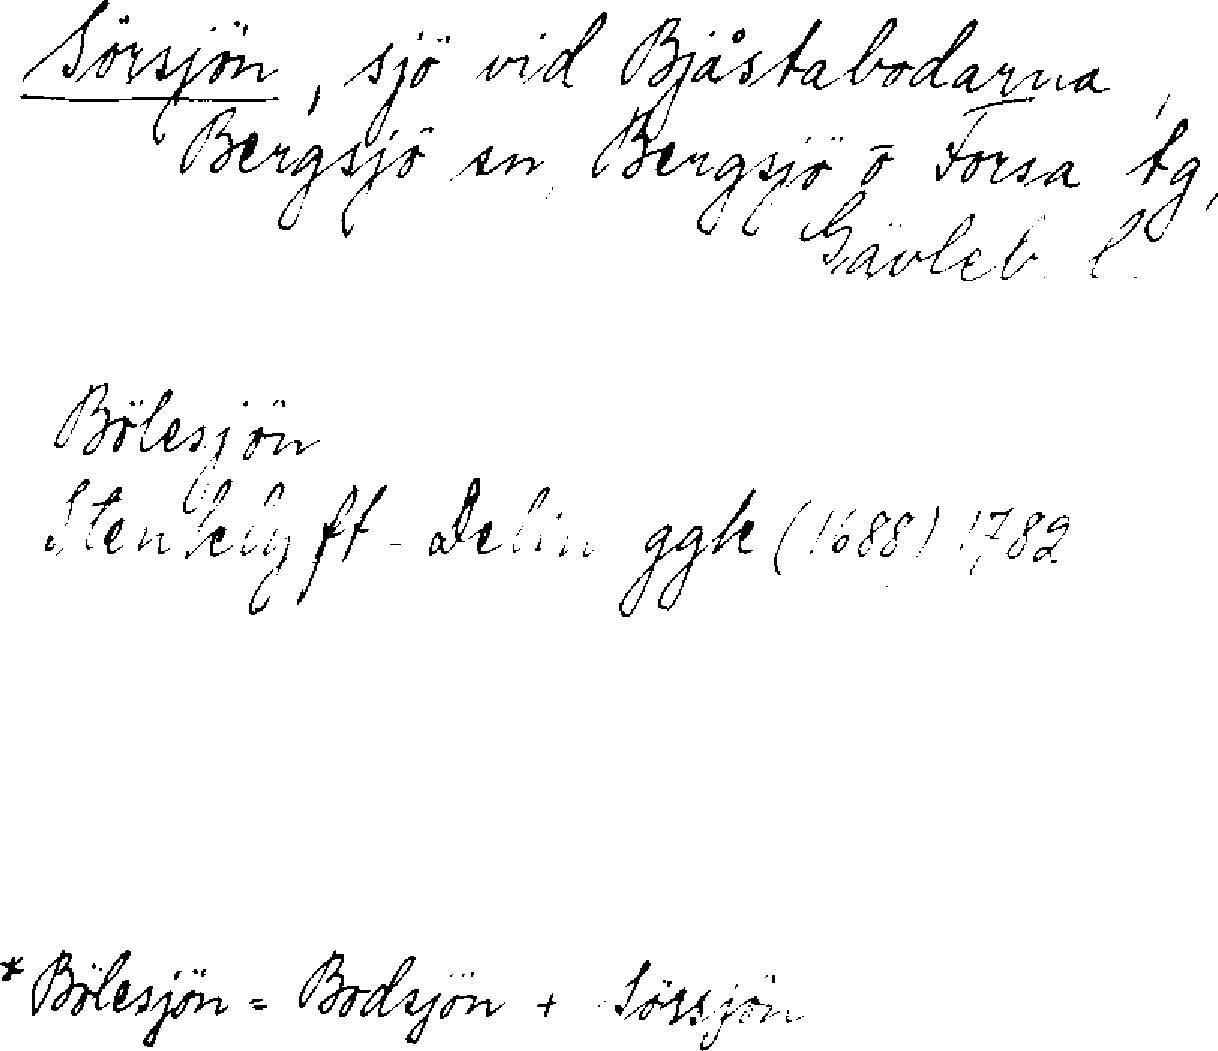 Sörsjön, sjö vid Bjåstabodarna,
Bergsjö sn, Bergsjö o Forsa tg,
Gävleb. l.
Bölesjön
ft - Delin ggk (1688) 1782
* Bölesjön = Bodsjön + Sörsjön